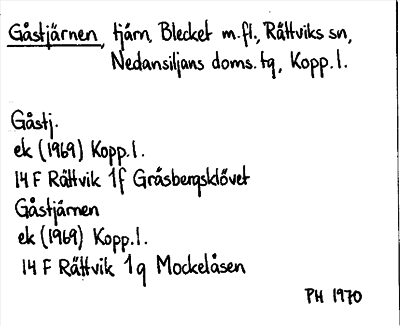 Gåstjärnen, tjärn, Blecket m.fl., Rättviks sn,
Nedansiljans doms. tg, Kopp. l.
Gåstj.
ek (1969) Kopp. l.
14 F Rättvik 1f Gråsbergsklövet
Gåstjärnen
ek (1969) Kopp. l.
14 F Rättvik 1g Mockelåsen
PH 1970